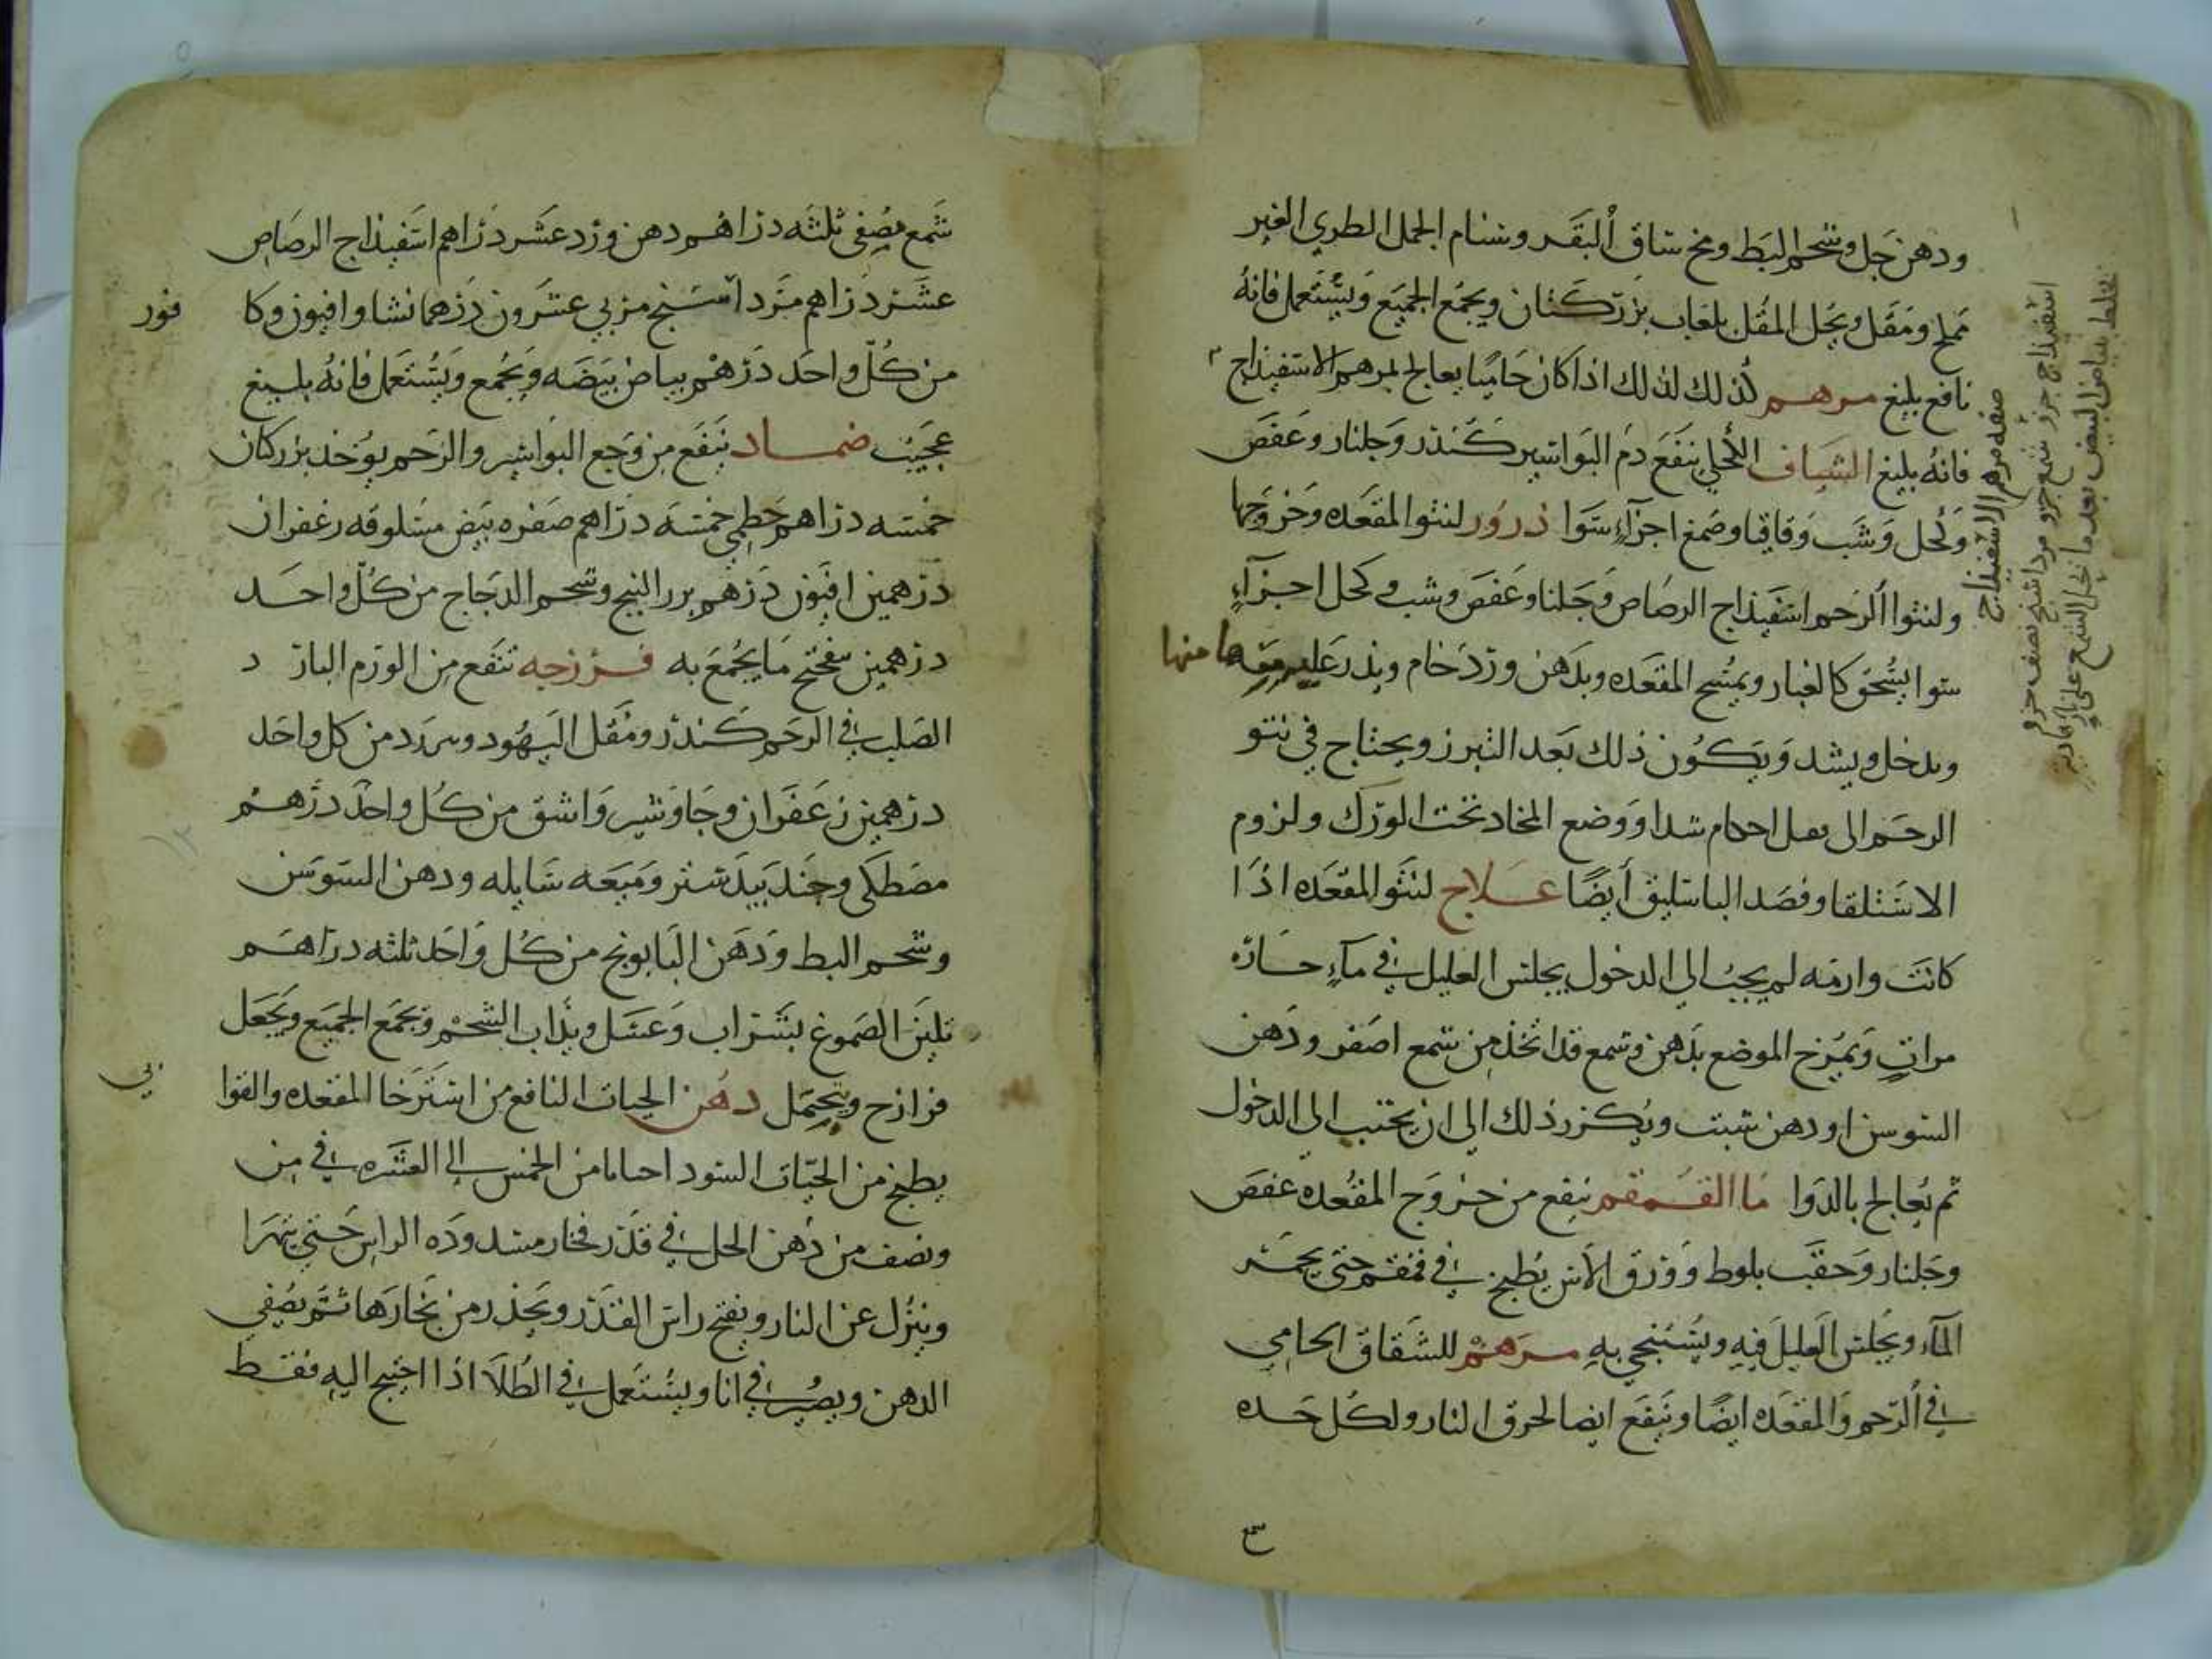 ودهن حل وشحم البط ومخ ساق البقر وسنام الجمل الطري الغير
مملح ومقل ويحل المقل بلعاب بزر كتان ويجمع الجميع ويستعمل فانه
نافع بليغ مرهم لذلك اذا كان حاميا يعالج بمرهم الاسفيذاج
فانه بليغ الشياف الكحلي ينفع دم البواسير كندر وجلنار وعفص
وكحل وشب وقاقيا وصمغ اجزآء سوا ذرور لنتوا المقعده وخروجها
ولنتوا الرحم اسفيذاج الرصاص وجلنا وعفص وشب وكحل اجزآء
سوا يسحق كالغبار ويمسح المقعده وبدهن ورد خام ويذر عليه منها
ويدخل ويشد ويكون ذلك بعد التبرز ويحتاج في نتو
الرحم الى فضل احكام شدا ووضع المخاد تحت الورك ولزوم
الاستلقا وفصد الباسليق أيضا علاج لنتو المقعده اذا
كانت وارمه لم يجب الى الدخول يجلس العليل في مآء حاره
مرات ويمرخ الموضع بدهن وشمع قد اتخذ من شمع اصفر ودهن
السوسن او دهن شبت ويكرر ذلك الى ان يجتب الى الدخول
ثم يعالج بالدوا ما القمقم ينفع من خروج المقعده عفص
وجلنار وحقب بلوط وورق الآس يطبخ في قمقم حتى يحمر
المآء ويجلس العليل فيه ويستنجي به مرهم للشقاق الحامي
في الرحم والمقعده ايضا وينفع ايضا لحرق النار ولكل حده
صفه مرهم الاسفيذاج
اسفيذاج جزو شمع جزو مرداسنج نصف جزو
شمع مصفى ثلثه دراهم دهن ورد عشر دراهم اسفيذاج الرصاص
عشر دراهم مرداسنج مربي عشرون درهما نشا وافيون وكا
فور
من كل واحد درهم بياض بيضه ويجمع ويستعمل فانه بليغ
عجيب ضماد ينفع من وجع البواسير والرحم يؤخذ بزر كتان
خمسه دراهم خطمي خمسه دراهم صفره بيض مسلوقه زعفران
درهمين افيون درهم بزر البنج وشحم الدجاج من كل واحد
درهمين ميفختج ما يجمع به فرزجه تنفع من الورم البارد
الصلب في الرحم كندر ومقل اليهود ومر من كل واحد
درهمين زعفران وجاوشير واشق من كل واحد درهم
مصطكى وجندبيدستر وميعه سايله ودهن السوسن
وشحم البط ودهن البابونج من كل واحد ثلثه دراهم
تلين الصموغ بشراب وعسل ويذاب الشحم وتجمع الجميع ويجعل
فرازج ويحتمل دهن الحيات النافع من استرخا المقعده والقوا
بي
يطبخ من الحيات السود احيا من الخمس الى العشره في من
ونصف من دهن الحل في قدر فخار مسدوده الراس حتى يتهرا
وينزل عن النار ويفتح راس القدر ويحذر من بخارها ثم يصفي
الدهن ويصير في انا ويستعمل في الطلا اذا احتيج اليه فقط